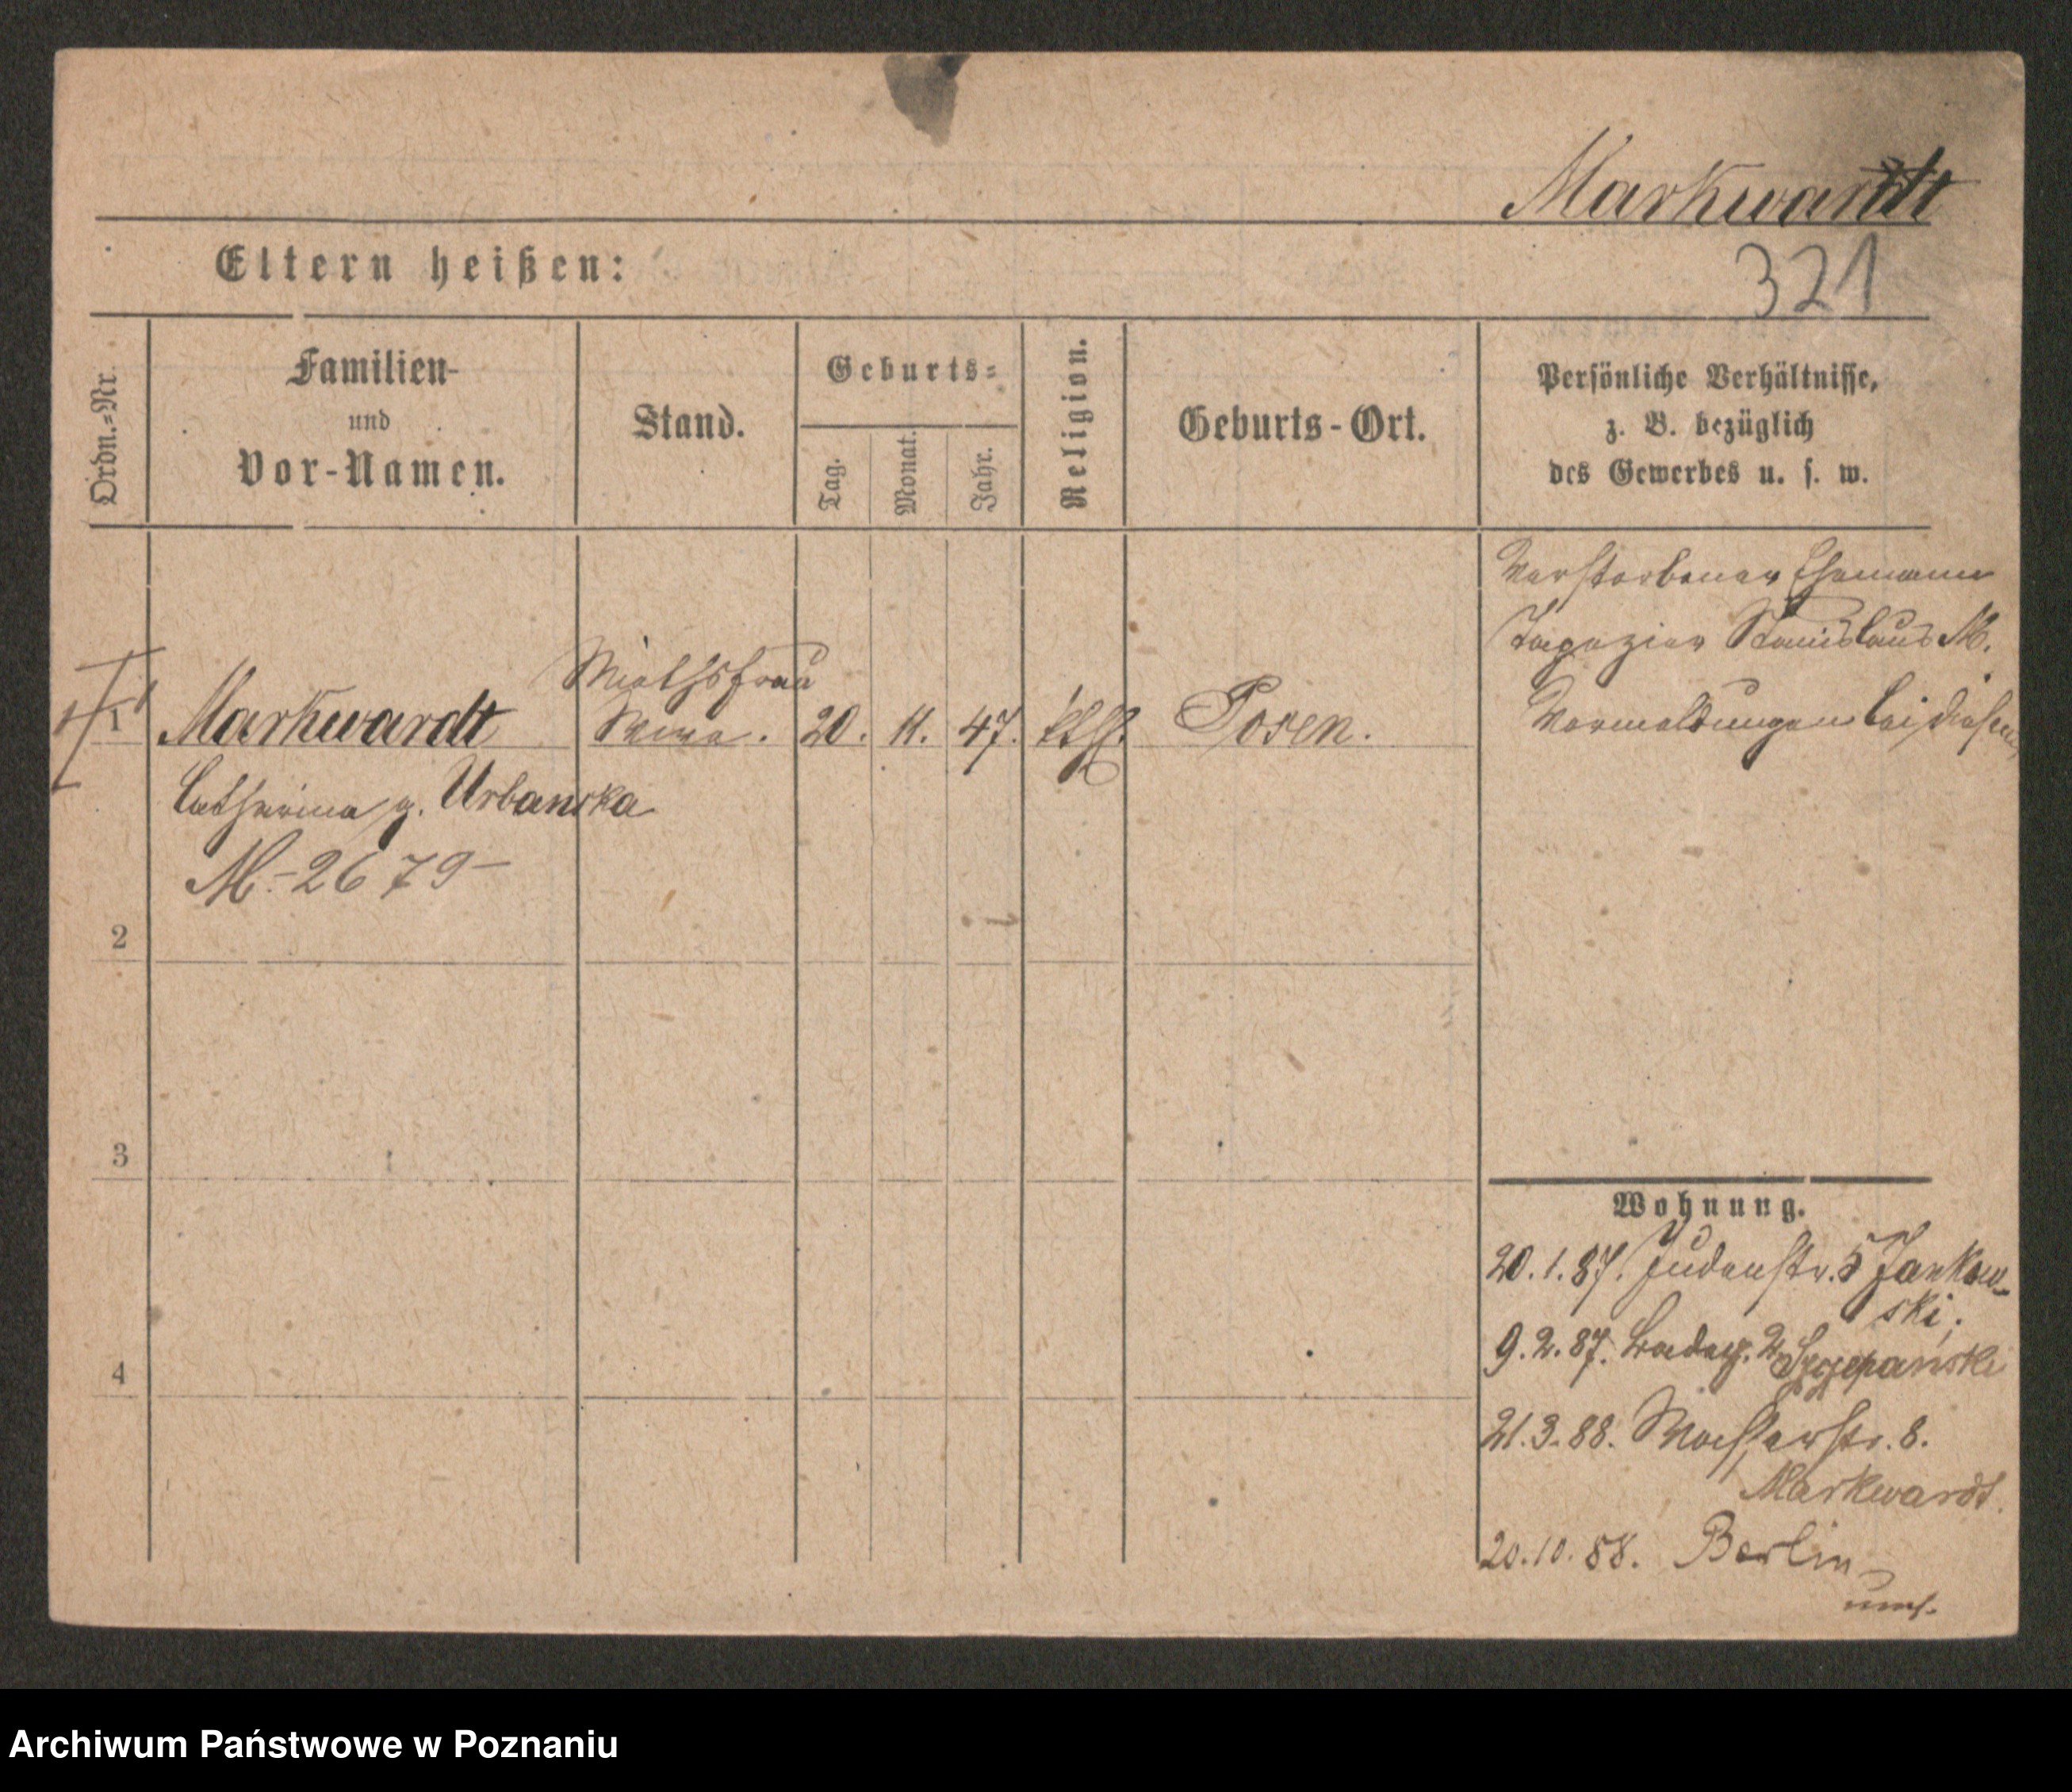 Markwardt
Eltern heißen:
321
Ordn.=Nr.
Familien-
und
Vor-Namen.
Stand.
Geburts=
Tag.
Monat.
Jahr.
Religion.
Geburts-Ort.
Persönliche Verhältnisse,
z. B. bezüglich
des Gewerbes u. s. w.
Verstorbener Ehemann
Tapezier Stanislaus M.
Vormeldungen bei diesem
1
Markwardt
Miethsfrau
Wwe.
20. 11. 47. kth.
Posen.
Catharina g. Urbanska
M.-2679-
2
3
4
Wohnung.
20.1.87. Judenstr. 5 Jankow-
ski.
9.2.87. 2 Szczepański
21.3.88. 8.
Markwardt.
20.10.88. Berlin
Archiwum Państwowe w Poznaniu